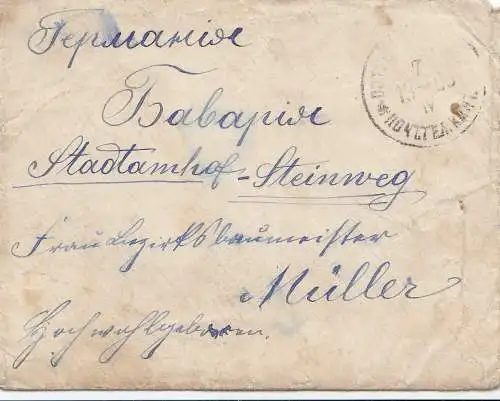 Германія
Баварія
Stadtamhof-Steinweg
Frau Bezirksbaumeister
Müller
Hochwohlgeboren.